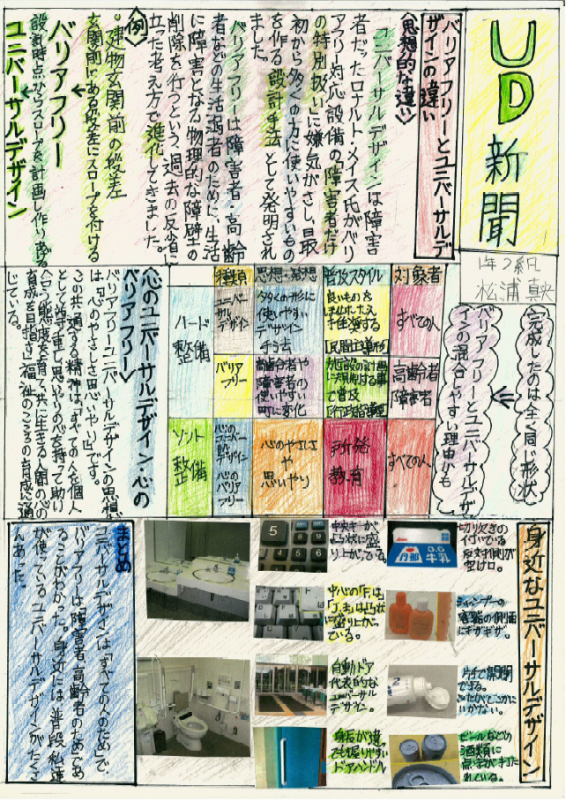 UD新聞
1年2組
松浦真央
バリアフリーとユニバーサルデ
ザインの違い
〈思想的な違い〉
ユニバーサルデザインは障害
者だったロナルド・メイス氏がバリ
アフリー対応設備の「障害者だけ
の特別扱い」に嫌気がさし、最
初から多くの方に使いやすいもの
を作る設計手法として発明され
ました。
バリアフリーは障害者・高齢
者などの生活弱者のために、生活
に障害となる物理的な障壁の
削除を行うという、過去の反省に
立った考え方で進化してきました。
〈例〉
建物玄関前の段差
玄関前にある段差にスロープを付ける
バリアフリー
設計時点からスロープを計画し作り
ユニバーサルデザイン
〈完成したのは全く同じ形状〉
バリアフリーとユニバーサルデザ
インの混合しやすい理由かも
種類 思想・発想 普及スタイル 対象者
ハード整備
ユニバーサルデザイン
多くの形に使いやすいデザイン手法
良いものを
推奨する
[民間主導形]
すべての人
バリアフリー
高齢者や障害者の使いやすい町に変化
で普及
[行政指導型]
高齢者
障害者
ソフト整備
心のユニバーサルデザイン
心のバリアフリー
心のやさしさや思いやり
啓発教育
すべての人
〈心のユニバーサルデザイン・心の
バリアフリー〉
バリアフリー・ユニバーサルデザインの思想
は「心のやさしさ・思いやり」です。
この共通する精神は、「すべての人を個人
として尊重し思いやりの心を持って助け
合う態度を育て、共に生きる人間の心の
育成を目指す」福祉のこころの育成に通
じている。
身近なユニバーサルデザイン
切り欠きの
付いている
反対側が
空け口。
シャンプーの
容器の側面
にギザギザ。
片手で開閉
できる。
ふたがどこかに
いかない。
ビールなどの
酒類に
点字が打た
れている。
中央キーが
凸状に盛
り上がっている。
中心の「F」、
「J」キーは凸状
に盛り上がっ
ている。
自動ドア
代表的な
ユニバーサル
デザイン。
身長が違
っても握りやすい
ドアハンドル
まとめ
ユニバーサルデザインは「すべての人のため」で
バリアフリーは「障害者・高齢者のため」であ
ることがわかった。身近には普段私達
が使っているユニバーサルデザインがたくさ
んあった。